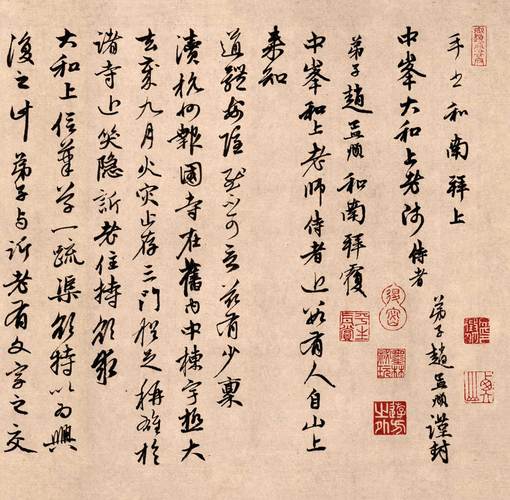 手書和南拜上
中峯大和上老師 侍者
弟子趙孟頫謹封
弟子趙孟頫和南拜覆
中峯和上老師侍者近有人自山上
來知
道體安隱慰不可言茲有少稟
瀆杭州報國寺在舊內中棟宇極大
去歲九月火災止存三門猶足稱雄於
諸寺近笑隱訢老住持欲求
大和上信筆草一疏渠欲特以為興
復之計弟子與訢老有文字之交